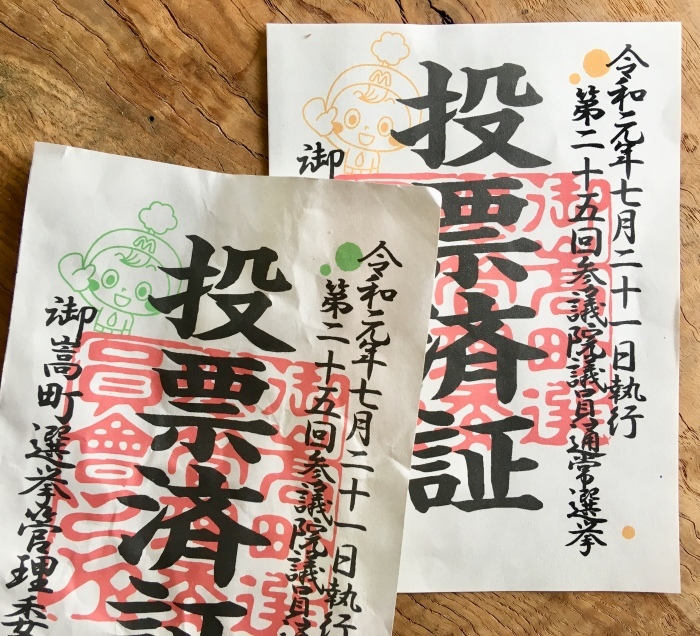 令和元年七月二十一日執行
第二十五回参議院議員通常選挙
投票済証
御
M
令和元年七月二十一日執行
第二十五回参議院議員
投票済証
御嵩町選挙管理委
M